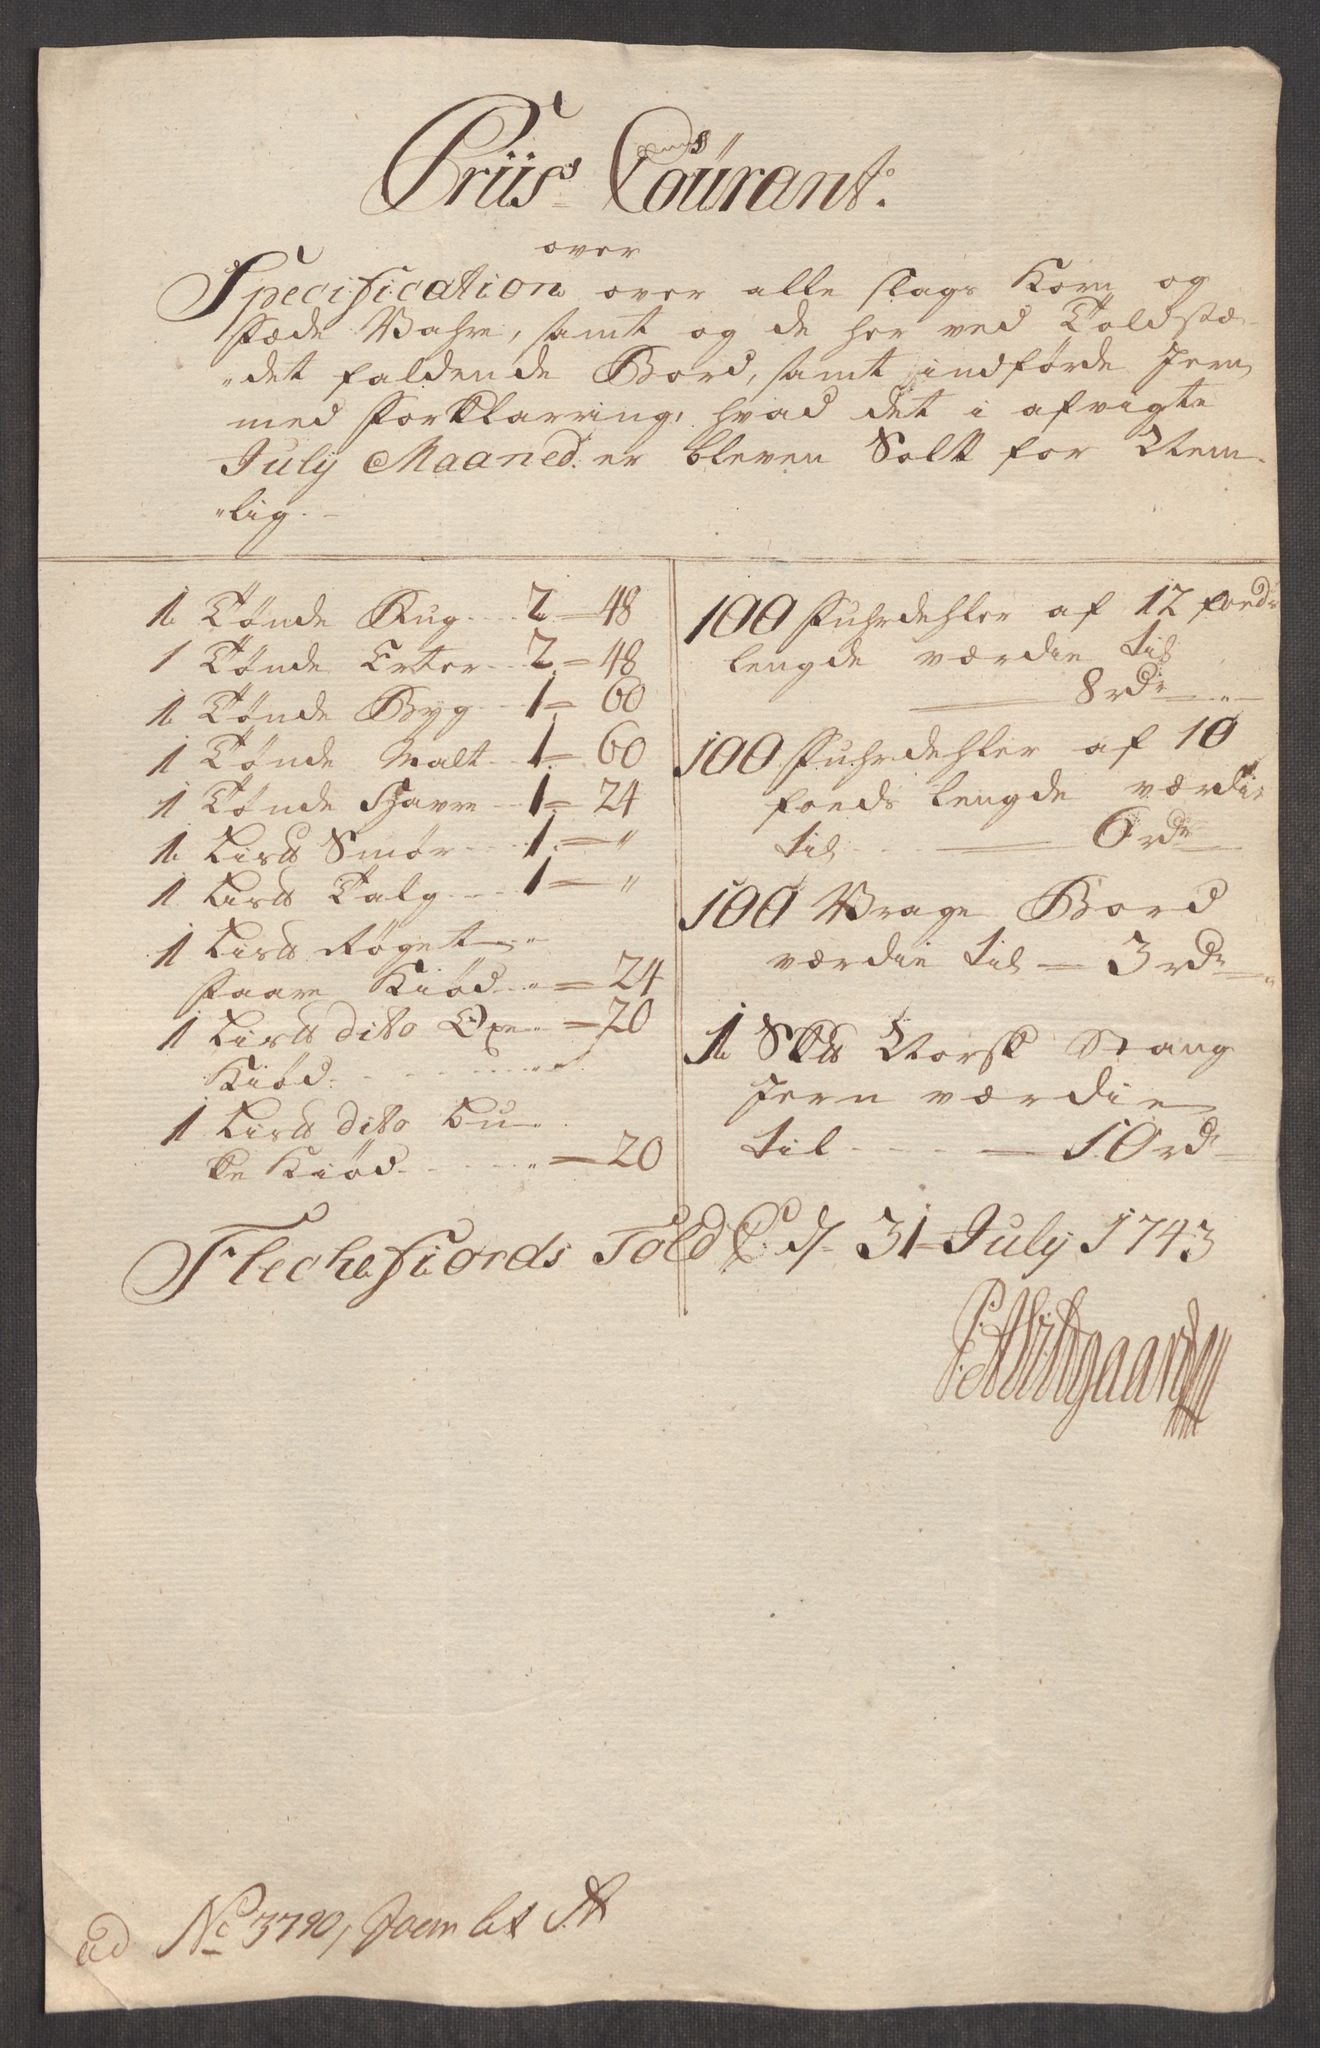 Priis Courant.
over
Specification over alle slags Korn og
Fæde Wahre, samt og de her ved Toldstæ-
"det faldende Bord, samt indførde Jern
med Forklarring, hvad det i afvigte
July Maaned er bleven Solt for Nem-
"lig.
1 Tønde Rug 2 = 48
1 Tønde Erter 2 = 48
1 Tønde Byg 1 = 60
1 Tønde Malt 1 = 60
1 Tønde Havre 1 = 24
1 Lis℔ Smør 1 = "
1 Lis℔ Talg 1 = "
1 Lis℔ Røget
Faare Kiød " = 24
1 Lis℔ dito Oxe " = 20
Kiød
1 Lis℔ dito Bu-
kke Kiød " = 20
100 Fuhrdehler af 12 foeds
lengde værdie til
8 rdr
100 Fuhrdehler af 10
foeds lengde værdie
til 6 rdr
100 Vrage Bord
værdie til 3 rdr
1 Sk℔ Norsk Stang
Jern værdie
til 10 rdr
Flechefiords Told C. d. 31 July 1743
P. Abildgaard
ad No 3790,